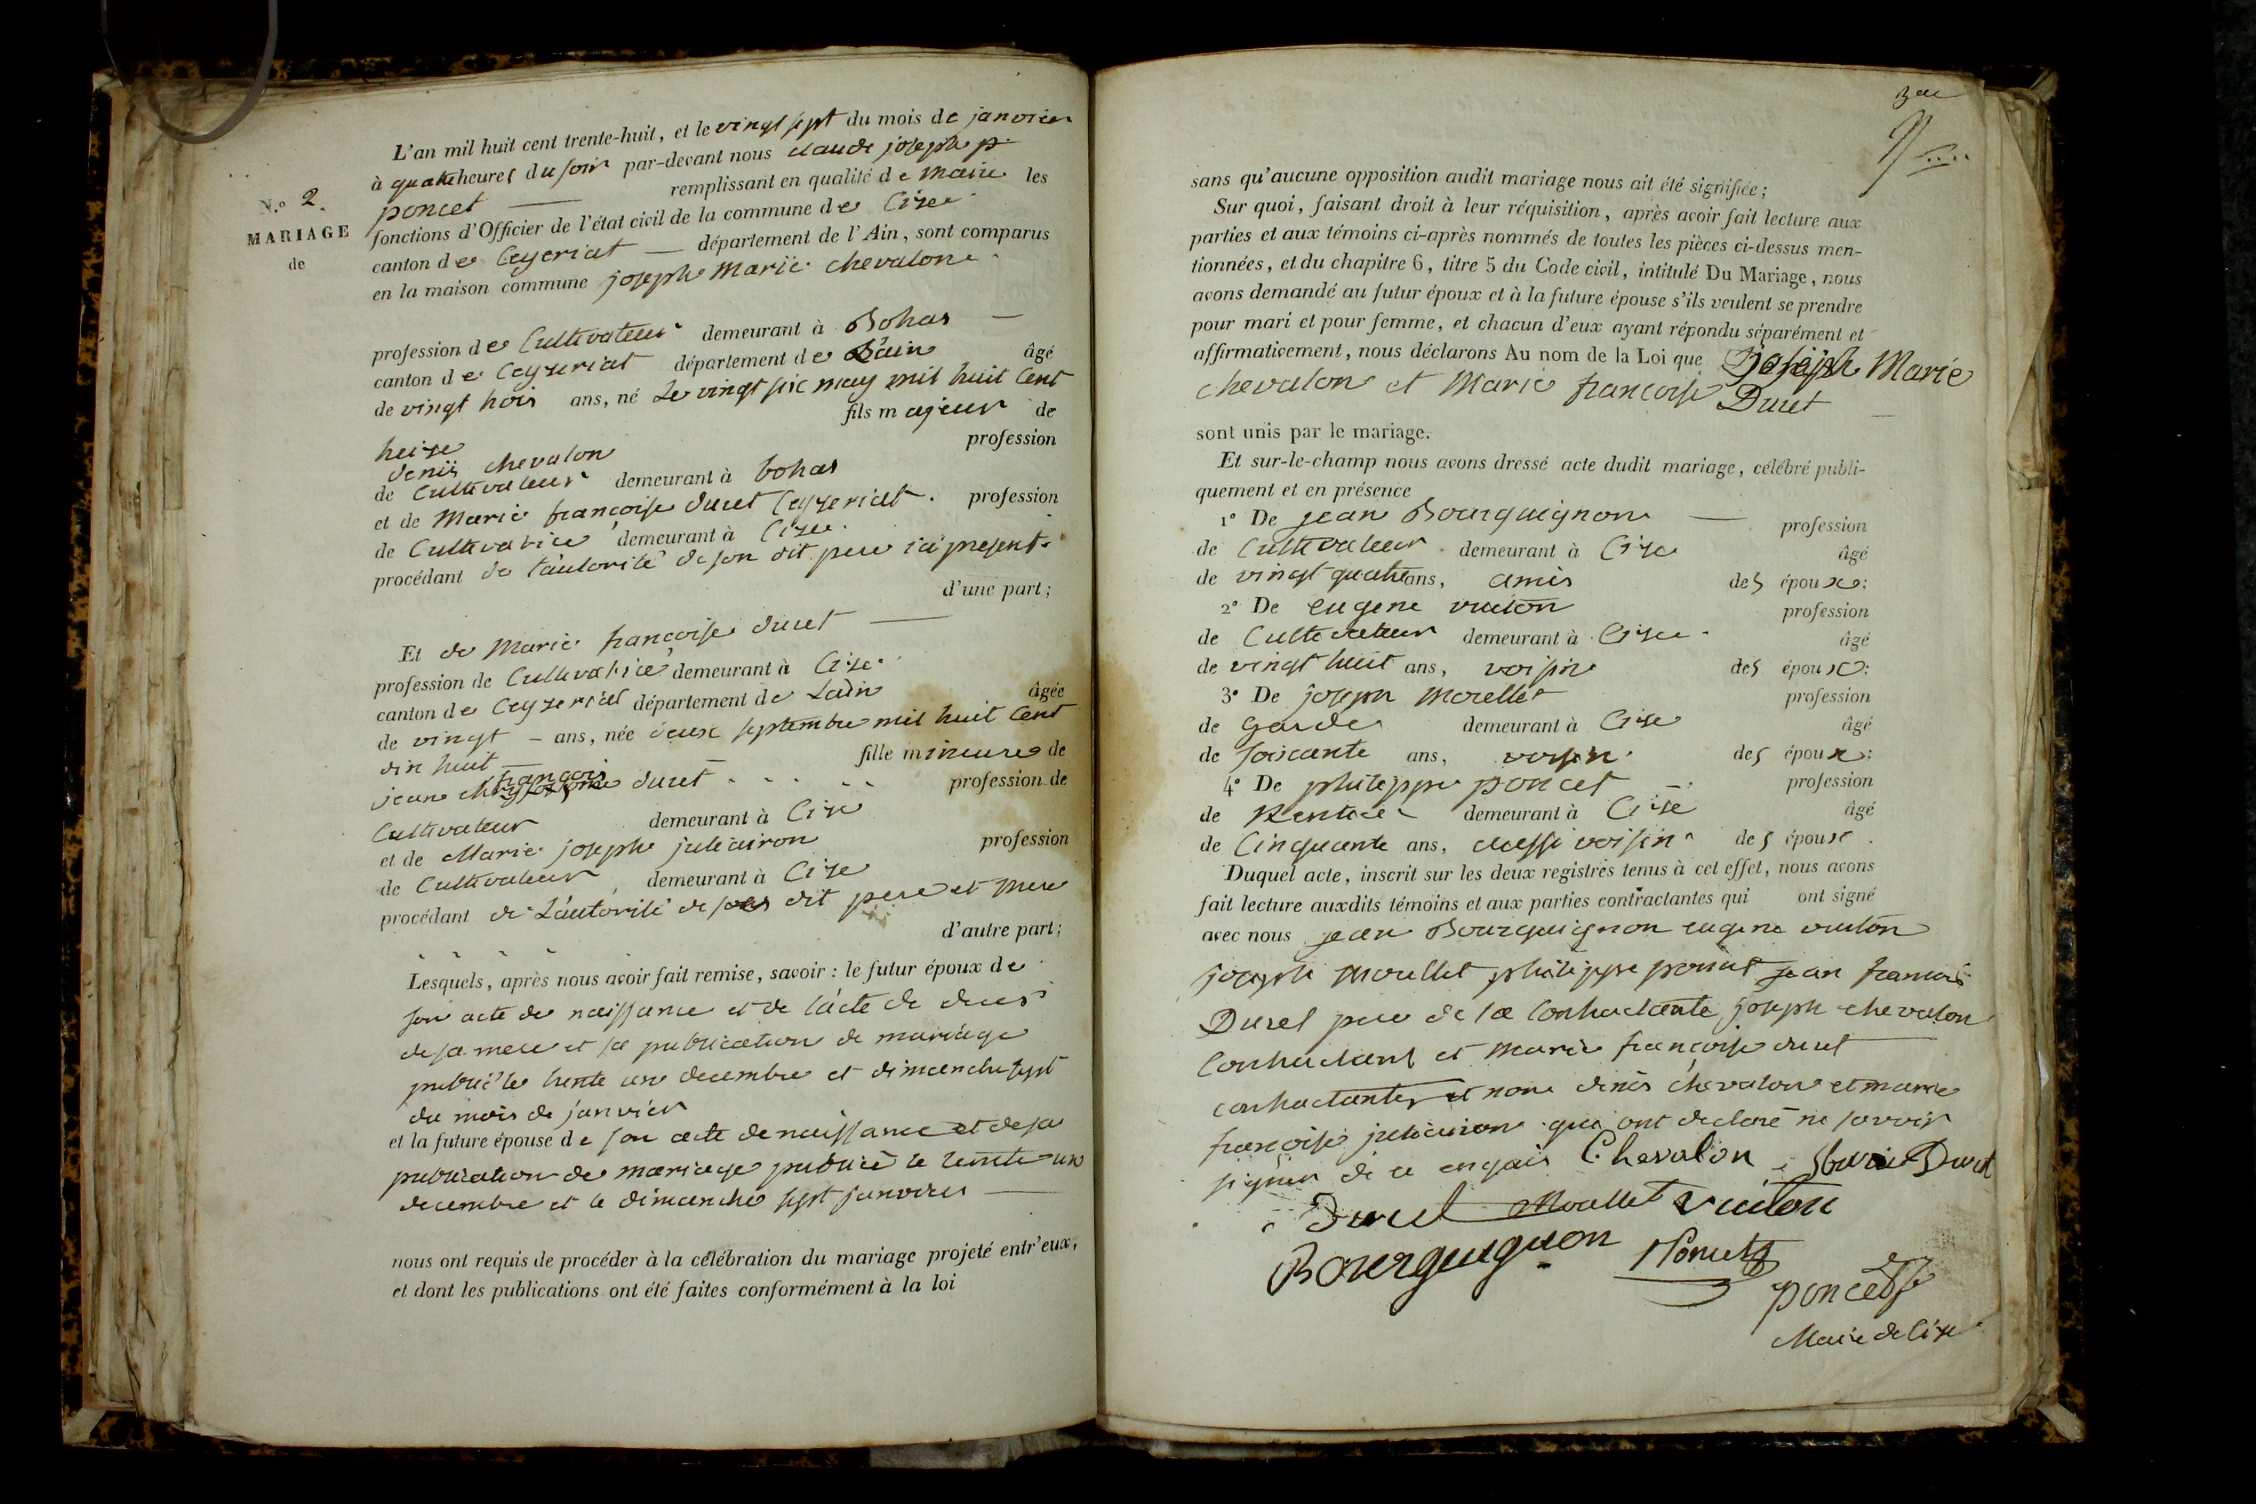 L'an mil huit cent trente-huit, et le vingt sept du mois de janvier
à quatre heures du soir par-devant nous claude joseph p
poncet remplissant en qualité de Maire les
N.° 2.
fonctions d'Officier de l'état civil de la commune de Cize
MARIAGE
de
canton de Ceyzeriat département de l'Ain, sont comparus
en la maison commune joseph Marie chevalon
profession de Cultivateur demeurant à Bohas
canton de Ceyzeriat département de L'ain âgé
de vingt trois ans, né Le vingt six may mil huit Cent
fils majeur de
treize
denis chevalon profession
de Cultivateur demeurant à bohas
et de Marie françoise duret Ceyzeriat profession
de Cultivatrice demeurant à Cize
procédant de l'autorité de son dit pere ici present
d'une part;
Et de Marie françoise duret
profession de Cultivatrice demeurant à Cize
canton de Ceyzeriat département de L'ain âgée
de vingt ans, née deux septembre mil huit Cent
dix huit fille mineure de
jean françois duret profession de
Cultivateur demeurant à Cize
et de Marie joseph juliairon profession
de Cultivateur demeurant à Cize
procédant de L'autorité de ses dit pere et mere
d'autre part;
Lesquels, après nous avoir fait remise, savoir: le futur époux de
son acte de naissance et de l'acte de deces
de sa mere et sa publication de mariage
publié le trente un decembre et dimanche sept
du mois de janvier
et la future épouse de son acte de naissance et de sa
publication de mariage publiée le trente un
decembre et le dimanche sept janvier
nous ont requis de procéder à la célébration du mariage projeté entr'eux,
et dont les publications ont été faites conformément à la loi
sans qu'aucune opposition audit mariage nous ait été signifiée;
Sur quoi, faisant droit à leur réquisition, après avoir fait lecture aux
parties et aux témoins ci-après nommés de toutes les pièces ci-dessus men-
tionnées, et du chapitre 6, titre 5 du Code civil, intitulé Du Mariage, nous
avons demandé au futur époux et à la future épouse s'ils veulent se prendre
pour mari et pour femme, et chacun d'eux ayant répondu séparément et
affirmativement, nous déclarons Au nom de la Loi que joseph Marie
chevalon et Marie françoise Duret
sont unis par le mariage.
Et sur-le-champ nous avons dressé acte dudit mariage, célébré publi-
quement et en présence
1° De jean Bourguignon profession
de Cultivateur demeurant à Cize âgé
de vingt quatre ans, amis des époux;
2° De eugene vuiton profession
de Cultivateur demeurant à Cize âgé
de vingt huit ans, voisin des époux;
3° De joseph Morellet profession
de Garde demeurant à Cize âgé
de soixante ans, voisin des époux;
4° De philippe poncet profession
de Rentier demeurant à Cize âgé
de Cinquante ans, aussi voisin des époux
Duquel acte, inscrit sur les deux registres tenus à cet effet, nous avons
fait lecture auxdits témoins et aux parties contractantes qui ont signé
avec nous jean Bourguignon eugene vuiton
joseph Morellet philippe poncet jean francois
Duret pere de la Contractante joseph chevalon
Contractant et Marie françoise duret
contractante et non denis chevalon et marie
françoise juliairon qui ont declaré ne savoir
signer de ce enquis Chevalon Marie Duret
Duret Morellet vuiton
Bourguignon Poncet
poncet
Maire de Cize